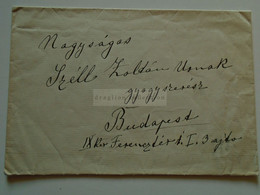 Nagyságos
Széll Zoltán Urnak
gyógyszerész
Budapest
IX ker Ferencz tér 1. I. 3 ajto